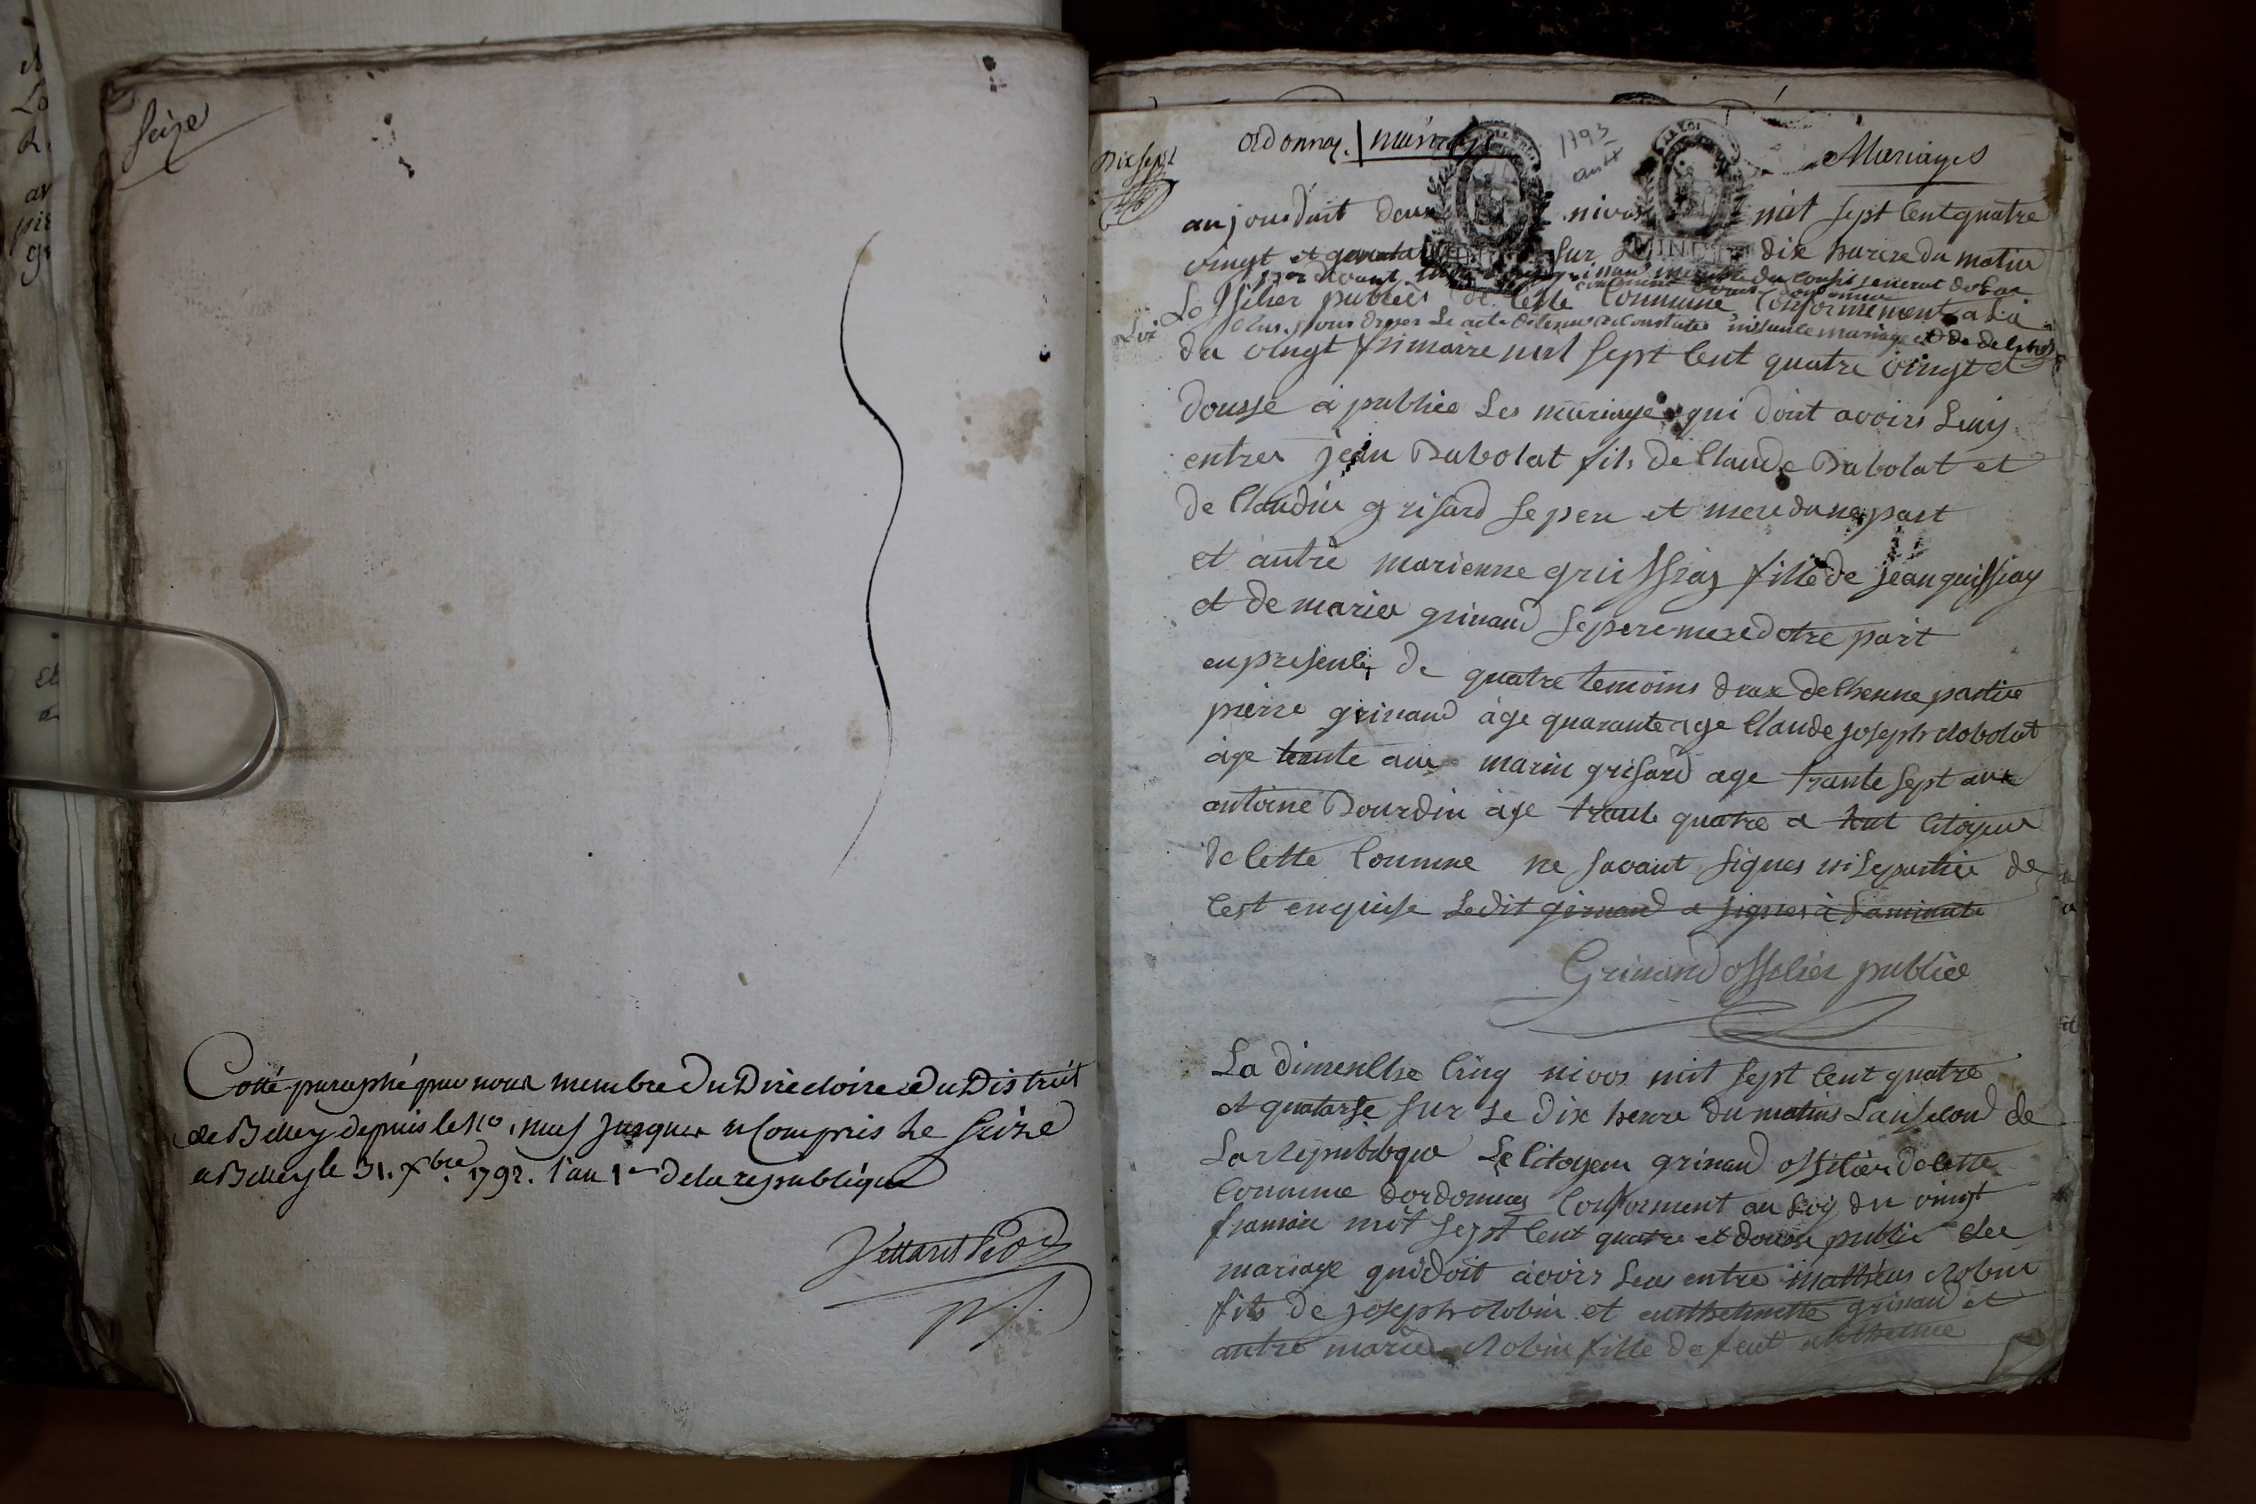 Seize
Cotté paraphé par nous membre du Directoire du District
de Belley depuis le No. neuf jusques y compris le Seize
a Belley le 31. Xbre 1792. l'an 1er de la republique
Dix sept
ordonnaz. mariage
1793
an 2
Mariages
aujourduit deux nivos mil sept Cent quatre
vingt et sur dix hurere du matin
par devant membre du Conseil general de la
Lofficier publics de Cette Commune Conformement a La
Loi
elus pour dreser Le acte destenus a Constates mariage et de
du vingt frimaire mil sept Cent quatre vingt et
dousse a publiée Les mariage qui doit avoirs Luis
entres jean Dubolat fils de Claude Dubolat et
de Claudin grisard se pere et mere dune part
et autre marienne gruissiaz fille de jean guissiay
et de maries grinand se pere mere dotre part
en presenle de quatre temoins deux de Chenne partie
pierre grinand age quarante age Claude joseph dobolat
age trante ans marin grisard age trante sept ans
antoine Dourdin age trante quatre a tout Citoyens
de Cette Commne ne savant signes ni se partie de
Cest enquise Ledit grinand a signes a La minute
Grinand offilier publice
La dimenche Cinq nivos mil sept Cent quatre
et quatarse sur Le dix heure du matins Lan segond de
La republique Le Citoyen grinand offilier de Cette
Commune dordonnas Conforment au Loy du vingt
framaire mil sept Cent quatre et douse publie les
mariage qui doit avoirs Leus entre mathieus Robin
fils de joseph Robin et enthelmette grinand et
autre marie Robin fille de feut anthelme